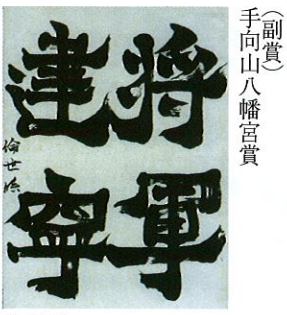 (副賞)
手向山八幡宮賞
将軍
建寧